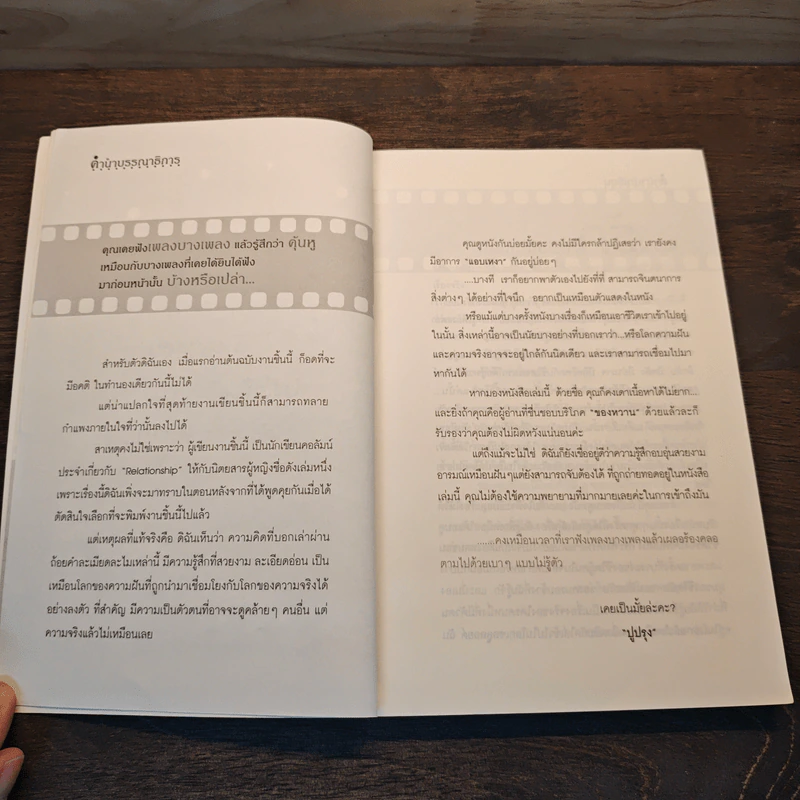 คำนำบรรณาธิการ
คุณเคยฟังเพลงบางเพลง แล้วรู้สึกว่า คุ้นหู
เหมือนกับบางเพลงที่เคยได้ยินได้ฟัง
มาก่อนหน้านั้น บ้างหรือเปล่า...
สำหรับตัวดิฉันเอง เมื่อแรกอ่านต้นฉบับงานชิ้นนี้ ก็อดที่จะ
มีอคติ ในทำนองเดียวกันนี้ไม่ได้
แต่น่าแปลกใจที่สุดท้ายงานเขียนชิ้นนี้ก็สามารถทลาย
กำแพงภายในใจที่ว่านั้นลงไปได้
สาเหตุคงไม่ใช่เพราะว่า ผู้เขียนงานชิ้นนี้ เป็นนักเขียนคอลัมน์
ประจำเกี่ยวกับ "Relationship" ให้กับนิตยสารผู้หญิงชื่อดังเล่มหนึ่ง
เพราะเรื่องนี้ดิฉันเพิ่งจะมาทราบในตอนหลังจากที่ได้พูดคุยกันเมื่อได้
ตัดสินใจเลือกที่จะพิมพ์งานชิ้นนี้ไปแล้ว
แต่เหตุผลที่แท้จริงคือ ดิฉันเห็นว่า ความคิดที่บอกเล่าผ่าน
ถ้อยคำละเมียดละไมเหล่านี้ มีความรู้สึกที่สวยงาม ละเอียดอ่อน เป็น
เหมือนโลกของความฝันที่ถูกนำมาเชื่อมโยงกับโลกของความจริงได้
อย่างลงตัว ที่สำคัญ มีความเป็นตัวตนที่อาจจะดูคล้ายๆ คนอื่น แต่
ความจริงแล้วไม่เหมือนเลย
คุณดูหนังกันบ่อยมั้ยคะ คงไม่มีใครกล้าปฏิเสธว่า เรายังคง
มีอาการ "แอบเหงา" กันอยู่บ่อยๆ
....บางที เราก็อยากพาตัวเองไปยังที่ที่ สามารถจินตนาการ
สิ่งต่างๆ ได้อย่างที่ใจนึก อยากเป็นเหมือนตัวแสดงในหนัง
หรือแม้แต่บางครั้งหนังบางเรื่องก็เหมือนเอาชีวิตเราเข้าไปอยู่
ในนั้น สิ่งเหล่านี้อาจเป็นนัยบางอย่างที่บอกเราว่า...หรือโลกความฝัน
และความจริงอาจจะอยู่ใกล้กันนิดเดียว และเราสามารถเชื่อมไปมา
หากันได้
หากมองหนังสือเล่มนี้ ด้วยชื่อ คุณก็คงเดาเนื้อหาได้ไม่ยาก...
และยิ่งถ้าคุณคือผู้อ่านที่ชื่นชอบบริโภค "ของหวาน" ด้วยแล้วละก็
รับรองว่าคุณต้องไม่ผิดหวังแน่นอนค่ะ
แต่ถึงแม้จะไม่ใช่ ดิฉันก็ยังเชื่ออยู่ดีว่าความรู้สึกอบอุ่นสวยงาม
อารมณ์เหมือนฝันๆแต่ยังสามารถจับต้องได้ ที่ถูกถ่ายทอดอยู่ในหนังสือ
เล่มนี้ คุณไม่ต้องใช้ความพยายามที่มากมายเลยค่ะในการเข้าถึงมัน
.......คงเหมือนเวลาที่เราฟังเพลงบางเพลงแล้วเผลอร้องคลอ
ตามไปด้วยเบาๆ แบบไม่รู้ตัว
เคยเป็นมั้ยล่ะคะ?
"ปูปรุง"